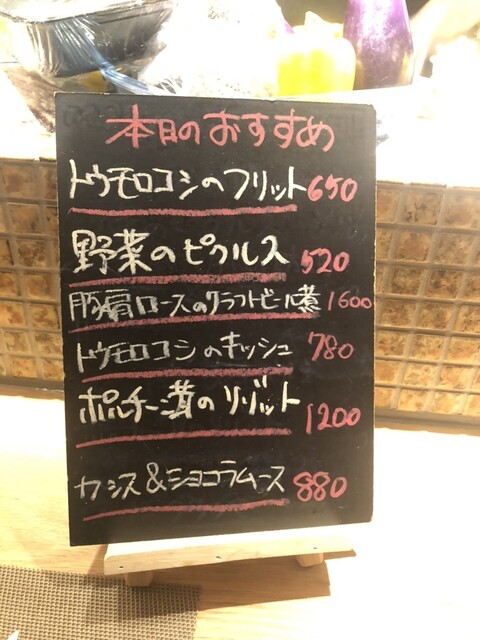 本日のおすすめ
トウモロコシのフリット 650
野菜のピクルス 520
豚肩ロースのクラフトビール煮 1600
トウモロコシのキッシュ 780
ポルチーニ茸のリゾット 1200
カシス&ショコラムース 880